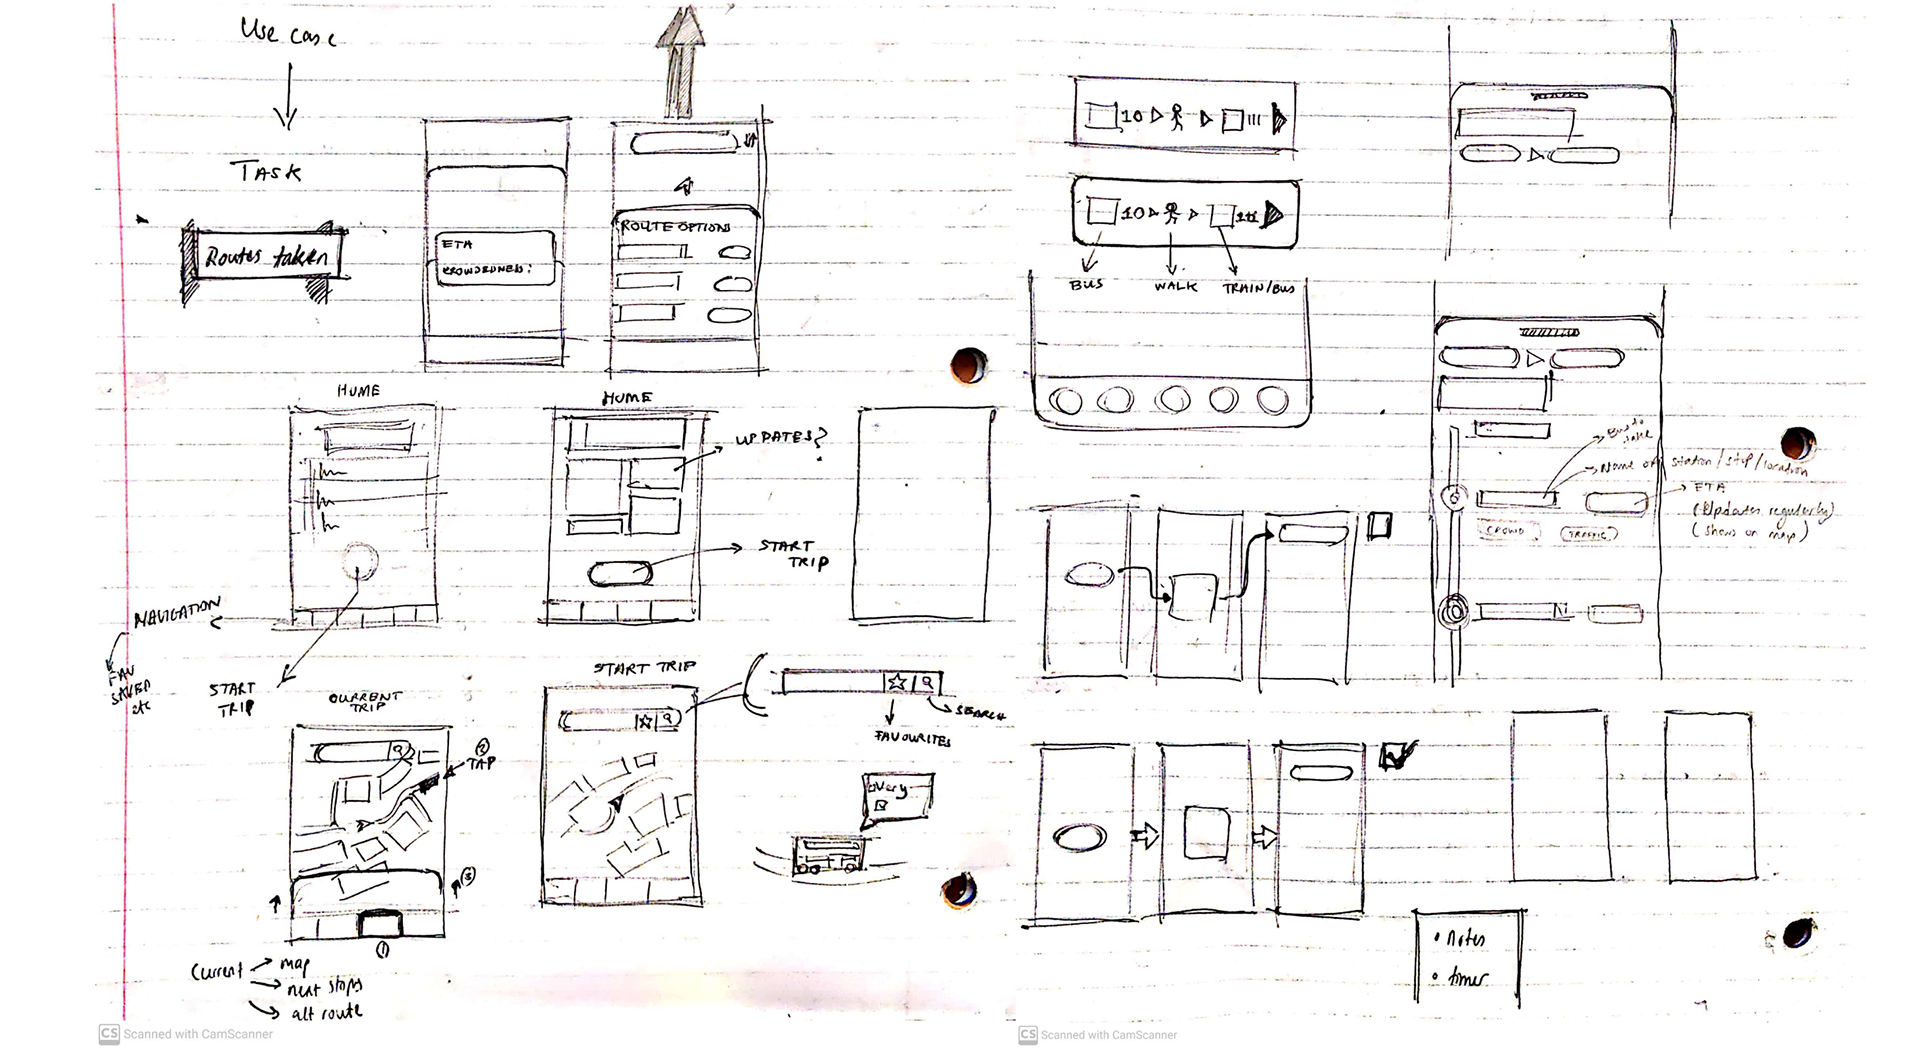 Use case
TASK
Routes taken
ETA
CROWDEDNESS:
ROUTE OPTIONS
HOME
HOME
UPDATES?
START
TRIP
NAVIGATION
FAV
SAVED
etc
START
TRIP
CURRENT
TRIP
② TAP
③
①
Current → map
→ next stops
→ alt route
START TRIP
SEARCH
FAVOURITES
Scanned with CamScanner
10
10
BUS
WALK
TRAIN/BUS
Bus to
take
Name of station/stop/location
ETA
(Updates regularly)
(shows on map)
CROWD
TRAFFIC
• Notes
• timer
Scanned with CamScanner